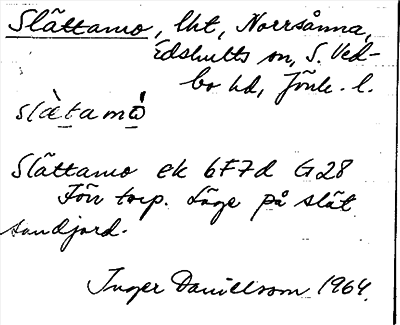 Slättamo, lht, Norrsånna,
Edshults sn, S. Ved-
bo hd, Jönk. l.
slätamo
Slättamo ek 6F7d G28
Förv torp. Läge på slät
sandjord.
Inger Danielsson 1964.